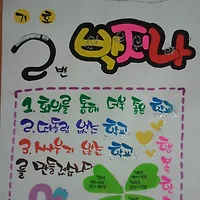 기호
2번 박지나
1. 회의를 통해 더욱 좋은 학교
2. 따돌림 없는 학교
3. 싸우지 않는 학교
를 만들겠습니다
행복한